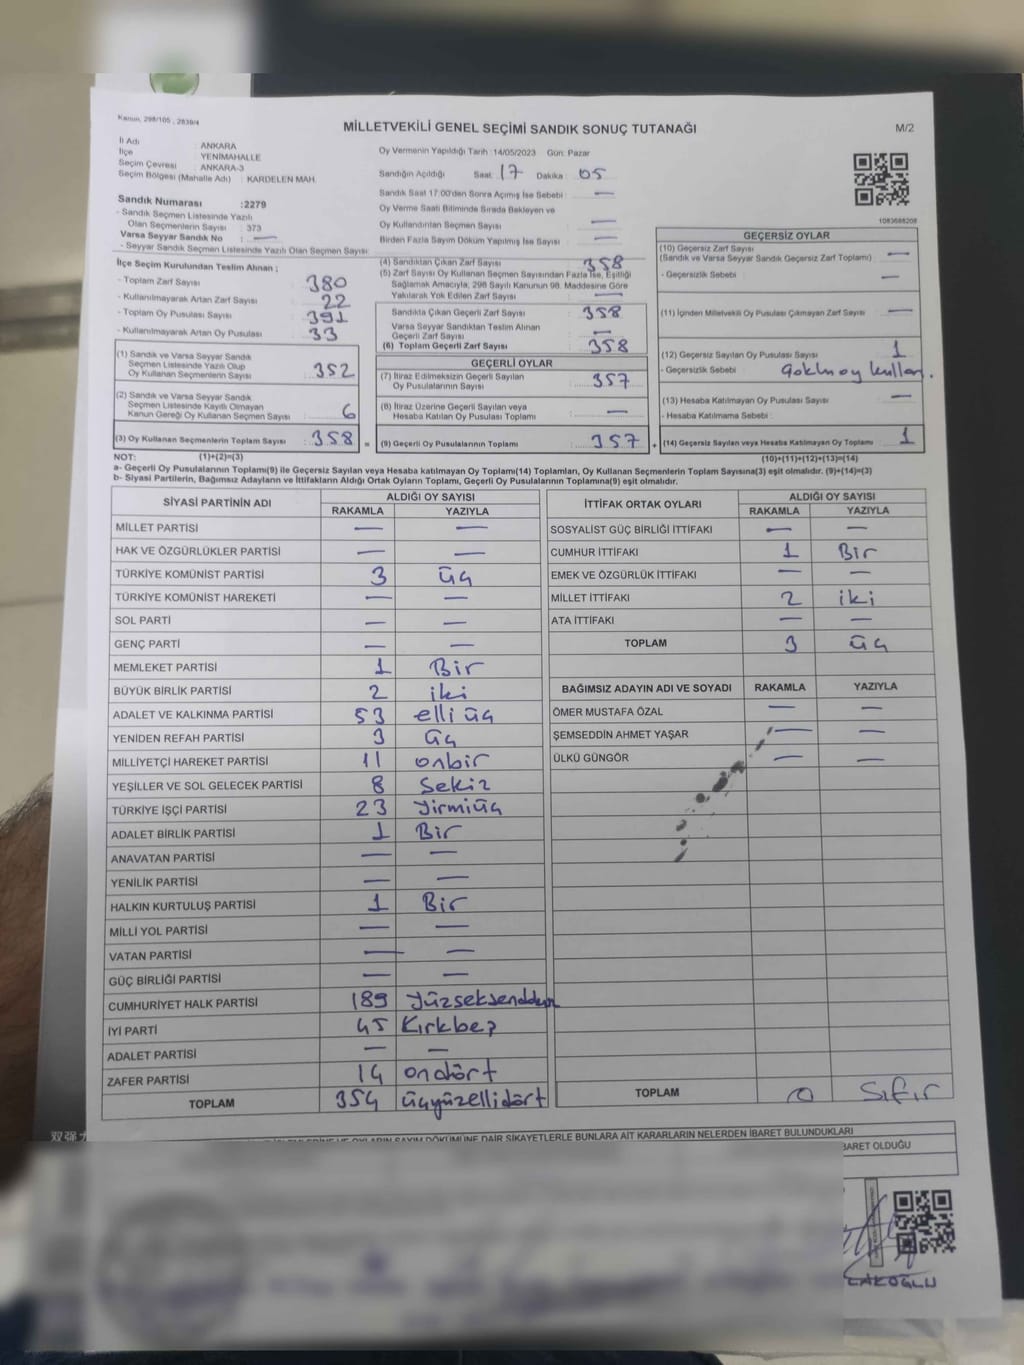 Kanun, 298/105 , 2839/4
MİLLETVEKİLİ GENEL SEÇİMİ SANDIK SONUÇ TUTANAĞI
M/2
İl Adı : ANKARA
İlçe : YENİMAHALLE
Seçim Çevresi : ANKARA-3
Seçim Bölgesi (Mahalle Adı) : KARDELEN MAH.
Oy Vermenin Yapıldığı Tarih :14/05/2023 Gün: Pazar
Sandığın Açıldığı Saat: 17 Dakika: 05
Sandık Saat 17:00'den Sonra Açılmış İse Sebebi : —
Oy Verme Saati Bitiminde Sırada Bekleyen ve
Oy Kullandırılan Seçmen Sayısı : —
Birden Fazla Sayım Döküm Yapılmış İse Sayısı : —
1083688208
Sandık Numarası :2279
- Sandık Seçmen Listesinde Yazılı
Olan Seçmenlerin Sayısı : 373
Varsa Seyyar Sandık No : —
- Seyyar Sandık Seçmen Listesinde Yazılı Olan Seçmen Sayısı:
İlçe Seçim Kurulundan Teslim Alınan ;
- Toplam Zarf Sayısı : 380
- Kullanılmayarak Artan Zarf Sayısı : 22
- Toplam Oy Pusulası Sayısı : 391
- Kullanılmayarak Artan Oy Pusulası : 33
(1) Sandık ve Varsa Seyyar Sandık
Seçmen Listesinde Yazılı Olup
Oy Kullanan Seçmenlerin Sayısı : 352
(2) Sandık ve Varsa Seyyar Sandık
Seçmen Listesinde Kayıtlı Olmayan
Kanun Gereği Oy Kullanan Seçmen Sayısı : 6
(3) Oy Kullanan Seçmenlerin Toplam Sayısı : 358 =
(4) Sandıktan Çıkan Zarf Sayısı : 358
(5) Zarf Sayısı Oy Kullanan Seçmen Sayısından Fazla İse, Eşitliği
Sağlamak Amacıyla, 298 Sayılı Kanunun 98. Maddesine Göre
Yakılarak Yok Edilen Zarf Sayısı : —
Sandıkta Çıkan Geçerli Zarf Sayısı : 358
Varsa Seyyar Sandıktan Teslim Alınan
Geçerli Zarf Sayısı : —
(6) Toplam Geçerli Zarf Sayısı : 358
GEÇERLİ OYLAR
(7) İtiraz Edilmeksizin Geçerli Sayılan
Oy Pusulalarının Sayısı : 357
(8) İtiraz Üzerine Geçerli Sayılan veya
Hesaba Katılan Oy Pusulası Toplamı : —
(9) Geçerli Oy Pusulalarının Toplamı : 357 +
GEÇERSİZ OYLAR
(10) Geçersiz Zarf Sayısı
(Sandık ve Varsa Seyyar Sandık Geçersiz Zarf Toplamı) : —
- Geçersizlik Sebebi : —
(11) İçinden Milletvekili Oy Pusulası Çıkmayan Zarf Sayısı : —
(12) Geçersiz Sayılan Oy Pusulası Sayısı : 1
- Geçersizlik Sebebi :
(13) Hesaba Katılmayan Oy Pusulası Sayısı : —
- Hesaba Katılmama Sebebi :
(14) Geçersiz Sayılan veya Hesaba Katılmayan Oy Toplamı : 1
NOT: (1)+(2)=(3)
(10)+(11)+(12)+(13)=(14)
a- Geçerli Oy Pusulalarının Toplamı(9) ile Geçersiz Sayılan veya Hesaba katılmayan Oy Toplamı(14) Toplamları, Oy Kullanan Seçmenlerin Toplam Sayısına(3) eşit olmalıdır. (9)+(14)=(3)
b- Siyasi Partilerin, Bağımsız Adayların ve İttifakların Aldığı Ortak Oyların Toplamı, Geçerli Oy Pusulalarının Toplamına(9) eşit olmalıdır.
SİYASİ PARTİNİN ADI ALDIĞI OY SAYISI
RAKAMLA YAZIYLA
MİLLET PARTİSİ — —
HAK VE ÖZGÜRLÜKLER PARTİSİ — —
TÜRKİYE KOMÜNİST PARTİSİ 3 üç
TÜRKİYE KOMÜNİST HAREKETİ — —
SOL PARTİ — —
GENÇ PARTİ — —
MEMLEKET PARTİSİ 1 Bir
BÜYÜK BİRLİK PARTİSİ 2 iki
ADALET VE KALKINMA PARTİSİ 53 elli üç
YENİDEN REFAH PARTİSİ 3 üç
MİLLİYETÇİ HAREKET PARTİSİ 11 onbir
YEŞİLLER VE SOL GELECEK PARTİSİ 8 Sekiz
TÜRKİYE İŞÇİ PARTİSİ 23 Yirmiüç
ADALET BİRLİK PARTİSİ 1 Bir
ANAVATAN PARTİSİ — —
YENİLİK PARTİSİ — —
HALKIN KURTULUŞ PARTİSİ 1 Bir
MİLLİ YOL PARTİSİ — —
VATAN PARTİSİ — —
GÜÇ BİRLİĞİ PARTİSİ — —
CUMHURİYET HALK PARTİSİ 189
İYİ PARTİ 45 Kırkbeş
ADALET PARTİSİ — —
ZAFER PARTİSİ 14 ondört
TOPLAM 354 üçyüzellidört
İTTİFAK ORTAK OYLARI ALDIĞI OY SAYISI
RAKAMLA YAZIYLA
SOSYALİST GÜÇ BİRLİĞİ İTTİFAKI — —
CUMHUR İTTİFAKI 1 Bir
EMEK VE ÖZGÜRLÜK İTTİFAKI — —
MİLLET İTTİFAKI 2 iki
ATA İTTİFAKI — —
TOPLAM 3 üç
BAĞIMSIZ ADAYIN ADI VE SOYADI RAKAMLA YAZIYLA
ÖMER MUSTAFA ÖZAL — —
ŞEMSEDDİN AHMET YAŞAR — —
ÜLKÜ GÜNGÖR — —
TOPLAM 0 Sıfır
双强
DÖKÜMÜNE DAİR ŞİKAYETLERLE BUNLARA AİT KARARLARIN NELERDEN İBARET BULUNDUKLARI
İBARET OLDUĞU